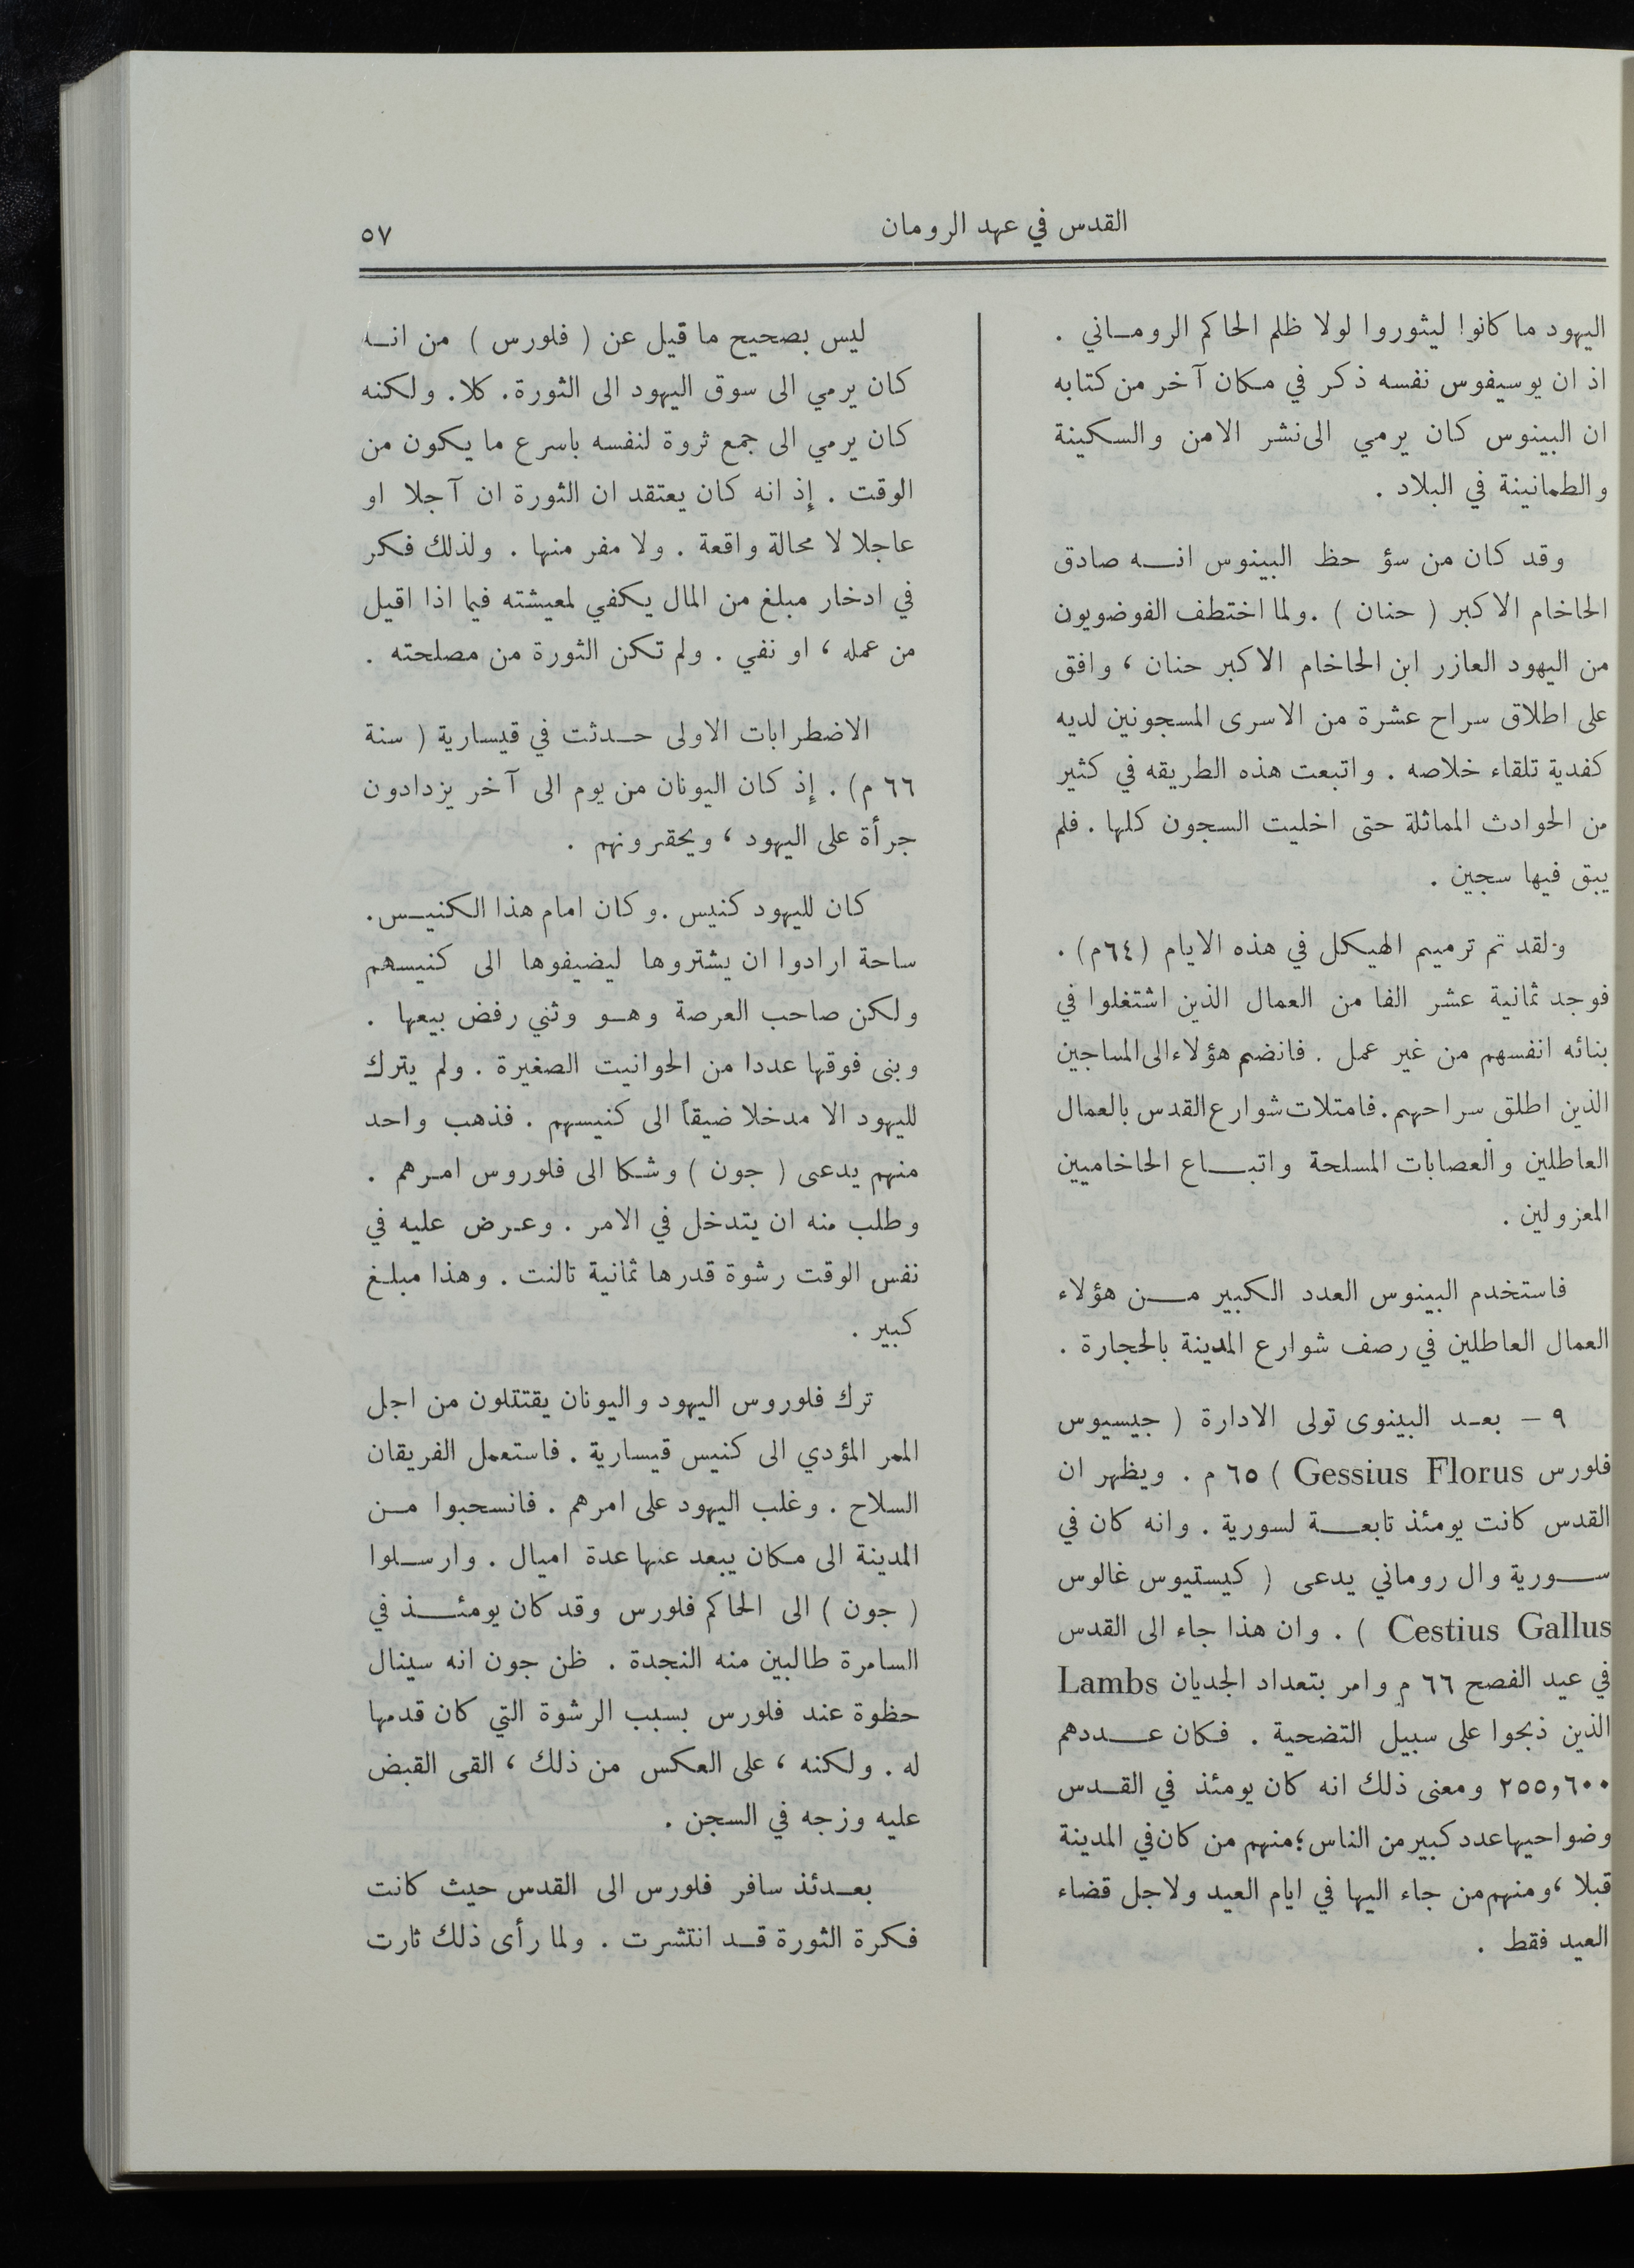 القدس في عهد الرومان
٥٧
اليهود ما كانوا ليثوروا لولا ظلم الحاكم الروماني .
اذ ان يوسيفوس نفسه ذكر في مكان آخر من كتابه
ان البينوس كان يرمي الى نشر الامن والسكينة
والطمانينة في البلاد .
وقد كان من سؤ حظ البينوس انه صادق
الحاخام الاكبر ( حنان ) . ولما اختطف الفوضويون
من اليهود العازر ابن الحاخام الاكبر حنان ، وافق
على اطلاق سراح عشرة من الاسرى المسجونين لديه
كفدية تلقاء خلاصه . واتبعت هذه الطريقه في كثير
من الحوادث المماثلة حتى اخليت السجون كلها . فلم
يبق فيها سجين .
ولقد تم ترميم الهيكل في هذه الايام (٦٤م) .
فوجد ثمانية عشر الفا من العمال الذين اشتغلوا في
بنائه انفسهم من غير عمل . فانضم هؤلاء الى المساجين
الذين اطلق سراحهم . فامتلات شوارع القدس بالعمال
العاطلين والعصابات المسلحة واتباع الحاخاميين
المعزولين .
فاستخدم البينوس العدد الكبير من هؤلاء
العمال العاطلين في رصف شوارع المدينة بالحجارة .
٩ – بعد البينوى تولى الادارة ( جيسيوس
فلورس Gessius Florus ) ٦٥ م . ويظهر ان
القدس كانت يومئذ تابعة لسورية . وانه كان في
سورية وال روماني يدعى ( كيستيوس غالوس
Cestius Gallus ) . وان هذا جاء الى القدس
في عيد الفصح ٦٦ م وامر بتعداد الجديان Lambs
الذين ذبحوا على سبيل التضحية . فكان عددهم
٢٥٥و٦٠٠ ومعنى ذلك انه كان يومئذ في القدس
وضواحيها عدد كبير من الناس ؛ منهم من كان في المدينة
قبلا ، ومنهم من جاء اليها في ايام العيد ولاجل قضاء
العيد فقط .
ليس بصحيح ما قيل عن ( فلورس ) من انه
كان يرمي الى سوق اليهود الى الثورة . كلا . ولكنه
كان يرمي الى جمع ثروة لنفسه باسرع ما يكون من
الوقت . إذ انه كان يعتقد ان الثورة ان آجلا او
عاجلا لا محالة واقعة . ولا مفر منها . ولذلك فكر
في ادخار مبلغ من المال يكفي لمعيشته فيما اذا اقيل
من عمله ، او نفي . ولم تكن الثورة من مصلحته .
الاضطرابات الاولى حدثت في قيسارية ( سنة
٦٦ م) . إذ كان اليونان من يوم الى آخر يزدادون
جرأة على اليهود ، ويحقرونهم .
كان لليهود كنيس . وكان امام هذا الكنيس .
ساحة ارادوا ان يشتروها ليضيفوها الى كنيسهم
ولكن صاحب العرصة وهو وثني رفض بيعها .
وبنى فوقها عددا من الحوانيت الصغيرة . ولم يترك
لليهود الا مدخلا ضيقاً الى كنيسهم . فذهب واحد
منهم يدعى ( جون ) وشكا الى فلوروس امرهم .
وطلب منه ان يتدخل في الامر . وعرض عليه في
نفس الوقت رشوة قدرها ثمانية تالنت . وهذا مبلغ
كبير .
ترك فلوروس اليهود واليونان يقتتلون من اجل
الممر المؤدي الى كنيس قيسارية . فاستعمل الفريقان
السلاح . وغلب اليهود على امرهم . فانسحبوا من
المدينة الى مكان يبعد عنها عدة اميال . وارسلوا
( جون ) الى الحاكم فلورس وقد كان يومئذ في
السامرة طالبين منه النجدة . ظن جون انه سينال
حظوة عند فلورس بسبب الرشوة التي كان قدمها
له . ولكنه ، على العكس من ذلك ، القى القبض
عليه وزجه في السجن .
بعدئذ سافر فلورس الى القدس حيث كانت
فكرة الثورة قد انتشرت . ولما رأى ذلك ثارت